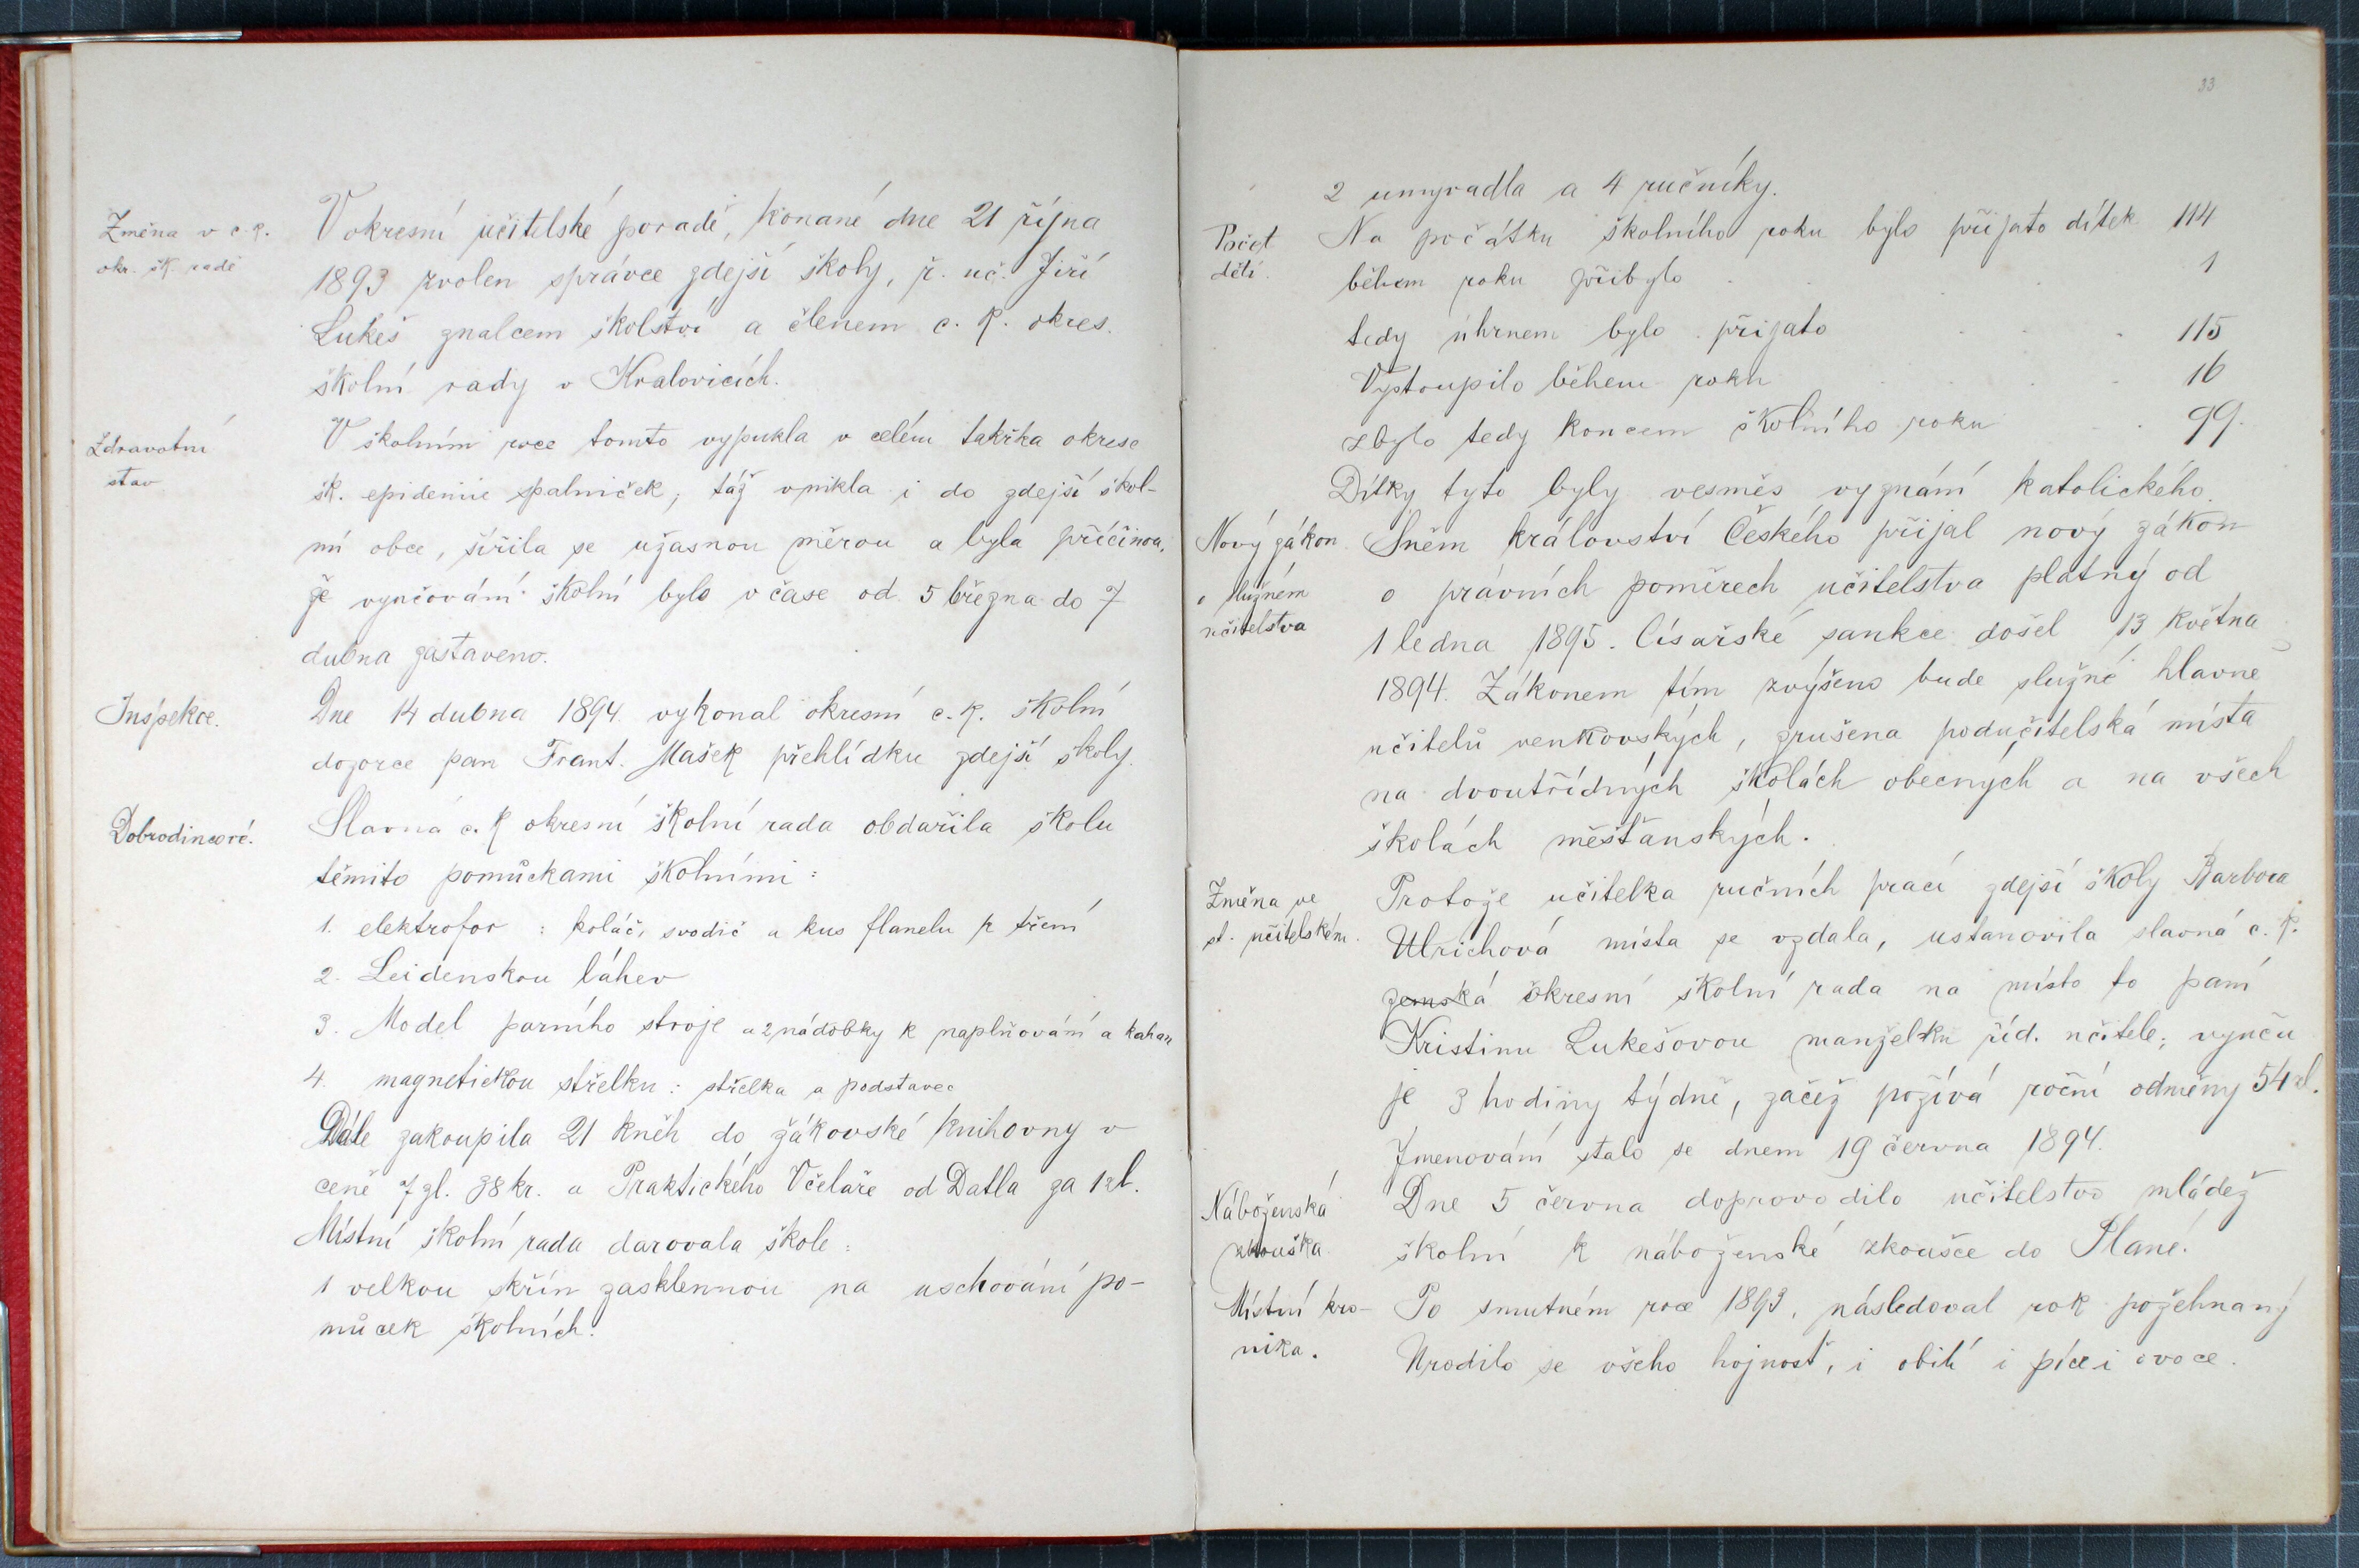 Změna v c. k.
okr. šk. radě
V okresní učitelské poradě, konané dne 21 října
1893 zvolen správce zdejší školy, ř. uč. Jiří
Lukeš znalcem školství a členem c. k. okres.
školní rady v Kralovicích.
Zdravotní
stav
V školním roce tomto vypukla v celém takřka okrese
šk. epidemie spalniček, táž vnikla i do zdejší škol-
ní obce, šířila se úžasnou měrou a byla příčinou,
že vyučování školní bylo v čase od 5 března do 7
dubna zastaveno.
Inspekce.
Dne 14 dubna 1894 vykonal okresní c. k. školní
dozorce pan Frant. Mašek přehlídku zdejší školy.
Dobrodincové.
Slavná c. k okresní školní rada obdařila školu
těmito pomůckami školními:
1. elektrofor: koláč, svodič a kus flanelu k tření
2. Leidenskou láhev
3. Model parního stroje a 2 nádobky k naplňování a kahan
4. magnetickou střelku: střelka a podstavec
Dále zakoupila 21 kněh do žákovské knihovny v
ceně 7 zl. 38 kr. a Praktického Včelaře od Datla za 1 zl.
Místní školní rada darovala škole:
1 velkou skříň zasklennou na uschování po-
můcek školních.
33
2 umyvadla a 4 ručníky.
Počet
dětí.
Na počátku školního roku bylo přijato dítek 114
během roku přibylo . . . 1
tedy úhrnem bylo přijato . . . 115
Vystoupilo během roku . . . 16
zbylo tedy koncem školního roku . . 99.
Dítky tyto byly vesměs vyznání katolického.
Nový zákon
o služném
učitelstva
Sněm království Českého přijal nový zákon
o právních poměrech učitelstva platný od
1 ledna 1895. Císařské sankce došel 13 května
1894. Zákonem tím zvýšeno bude služné hlavně
učitelů venkovských, zrušena podučitelská místa
na dvoutřídných školách obecných a na všech
školách měšťanských.
Změna ve
st. učitelském.
Protože učitelka ručních prací zdejší školy Barbora
Ulrichová místa se vzdala, ustanovila slavná c. k.
zemská okresní školní rada na místo to paní
Kristinu Lukešovou manželku říd. učitele; vyuču
je 3 hodiny týdně, začež požívá roční odměny 54 zl.
Jmenování stalo se dnem 19 června 1894.
Náboženská
zkouška.
Dne 5 června doprovodilo učitelstvo mládež
školní k náboženské zkoušce do Plané.
Místní kro-
nika.
Po smutném roce 1893, následoval rok požehnaný
Urodilo se všeho hojnost, i obilí i píce i ovoce.